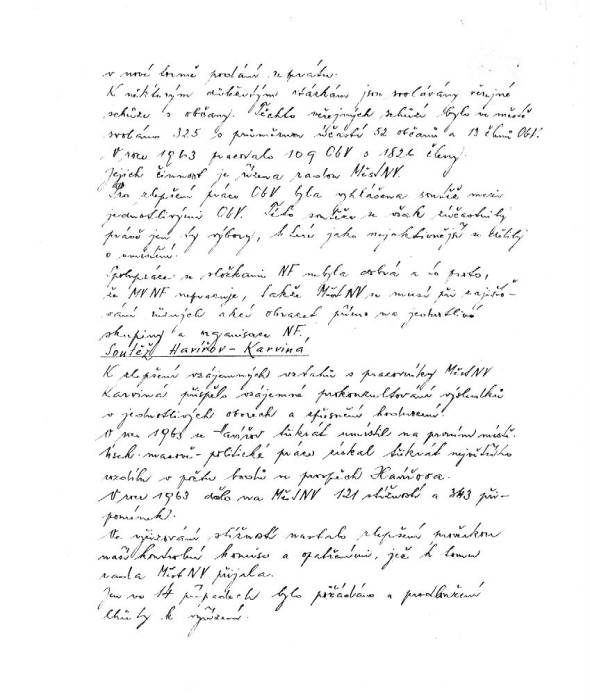 v nové formě podání zprávy.
K některým důležitým otázkám jsou svolávány veřejné
schůze s občany. Těchto veřejných schůzí bylo ve městě
svoláno 325 s průměrnou účastí 52 občanů a 13 členů ObV.
V roce 1963 pracovalo 109 ObV s 1826 členy.
Jejich činnost je řízena radou MěstNV.
Pro zlepšení práce ObV byla vyhlášena soutěž mezi
jednotlivými ObV. Této soutěže se však zúčastnily
právě jen ty výbory, které jako nejaktivnější se
o umístění.
Spolupráce se složkami NF nebyla dobrá a to proto,
že MVNF nepracuje, takže MěstNV se musí při zajišťo-
vání různých akcí obracet přímo na jednotlivé
skupiny a organisace NF.
Soutěž Havířov - Karviná
K zlepšení vzájemných vztahů s pracovníky MěstNV
Karviná přispělo vzájemné prokonzultování výsledků
v jednotlivých oborech a zpřesnění hodnocení.
V roce 1963 se Havířov třikrát umístil na prvním místě.
Úsek masově-politické práce získal třikrát největšího
rozdílu v počtu bodů ve prospěch Havířova.
V roce 1963 došlo na MěstNV 121 stížností a 343 při-
pomínek.
Ve vyřizování stížností nastalo zlepšení
naší kontrolní komise a opatřeními, jež k tomu
rada MěstNV přijala.
Jen ve 14 případech bylo požádáno o prodloužení
lhůty k vyřízení.